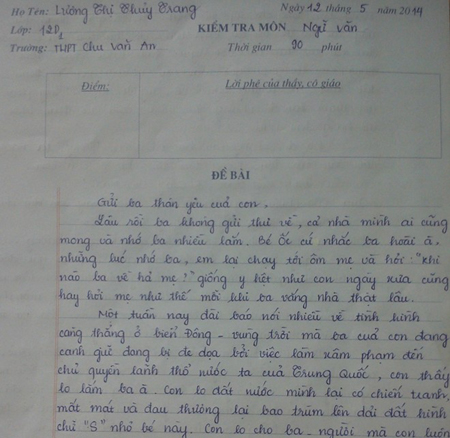 Họ Tên: Lương Thị Thuỳ Trang Ngày 12 tháng 5 năm 2014
Lớp: 12D1 KIỂM TRA MÔN Ngữ văn
Trường: THPT Chu Văn An Thời gian 90 phút
Điểm: Lời phê của thầy, cô giáo
ĐỀ BÀI
Gửi ba thân yêu của con,
Lâu rồi ba không gửi thư về, cả nhà mình ai cũng
mong và nhớ ba nhiều lắm. Bé Ốc cứ nhắc ba hoài à,
những lúc nhớ ba, em lại chạy tới ôm mẹ và hỏi: "khi
nào ba về hả mẹ?" giống y hệt như con ngày xưa cũng
hay hỏi mẹ như thế mỗi khi ba vắng nhà thật lâu.
Một tuần nay đài báo nói nhiều về tình hình
căng thẳng ở biển Đông - vùng trời mà ba của con đang
canh giữ đang bị đe dọa bởi việc làm xâm phạm đến
chủ quyền lãnh thổ nước ta của Trung Quốc, con thấy
lo lắm ba ạ. Con lo đất nước mình lại có chiến tranh,
mất mát và đau thương lại bao trùm lên dải đất hình
chữ "S" nhỏ bé này. Con lo cho ba - người mà con luôn